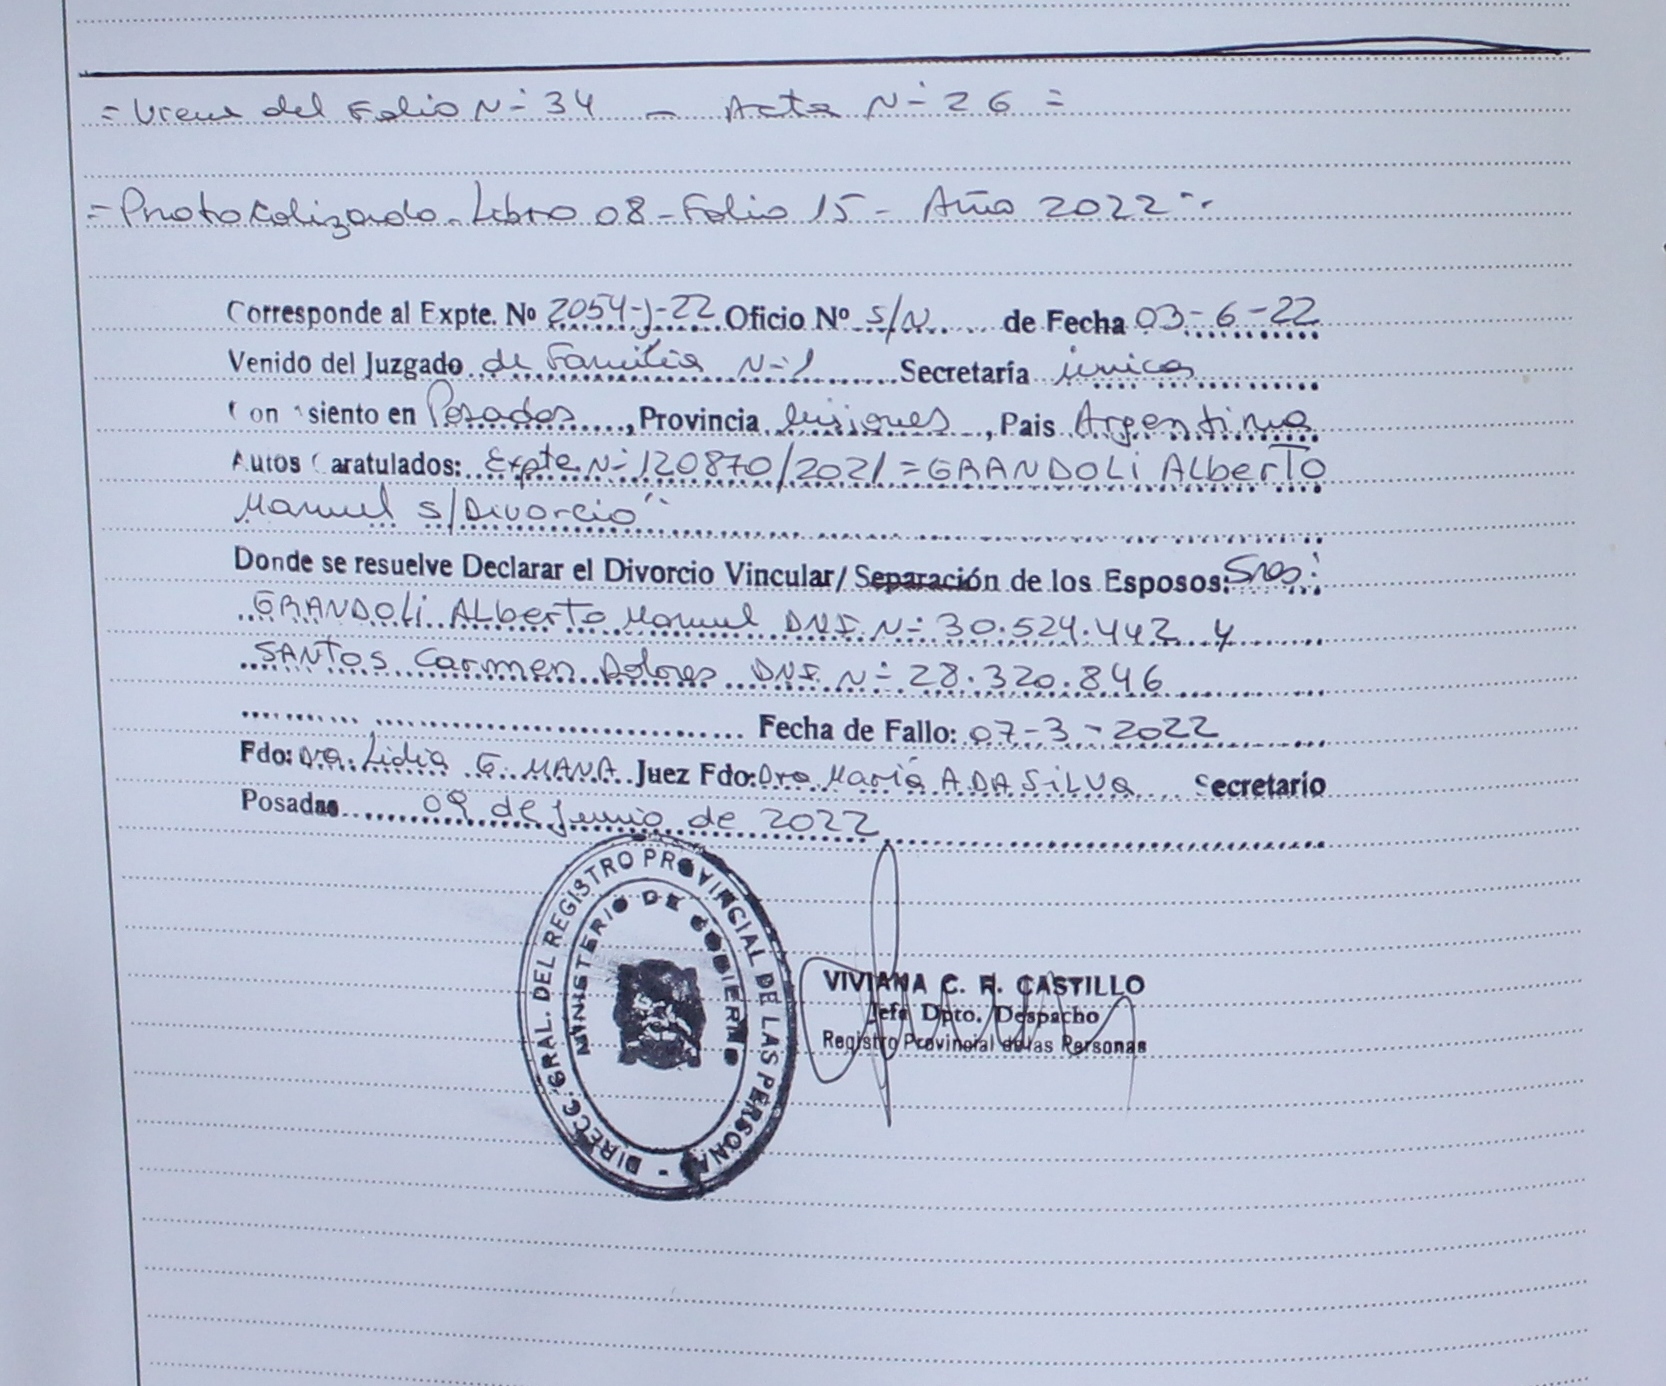 = Viene del Folio N- 34 - Acta N- 26 =
= Protokolizado - Libro 08 - Folio 15 - Año 2022 -
Corresponde al Expte. Nº 2054-J-22 Oficio Nº S/N de Fecha 03-6-22
Venido del Juzgado de Familia N-1 Secretaría única
Con asiento en Posadas, Provincia Misiones, Pais Argentina
Autos Caratulados: Expte N- 120870/2021 = GRANDOLI ALberTo
Manuel s/Divorcio"
Donde se resuelve Declarar el Divorcio Vincular/ Separación de los Esposos: Sres:
GRANDOLI ALberto Manuel DNI. N- 30.524.442 y
SANTOS Carmen Dolores DNI. N- 28.320.846
Fecha de Fallo: 07-3-2022
Fdo: Dra. Lidia G. MANA Juez Fdo: Dra María A DA SiLVa Secretario
Posadas 09 de Junio de 2022
DIRECC. GRAL. DEL REGISTRO PROVINCIAL DE LAS PERSONAS -
MINISTERIO DE GOBIERNO
VIVIANA C. R. CASTILLO
Jefe Dpto. Despacho
Registro Provincial de las Personas